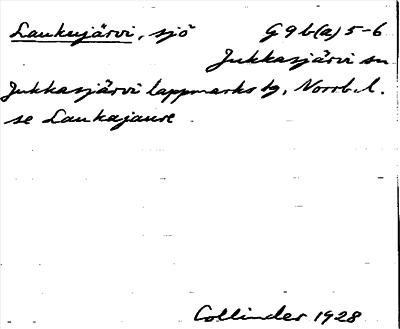 Laukujärvi, sjö G9b(a)5-6
Jukkasjärvi sn
Jukkasjärvi lappmarks tg, Norrb. l.
se Laukajaure
Collinder 1928